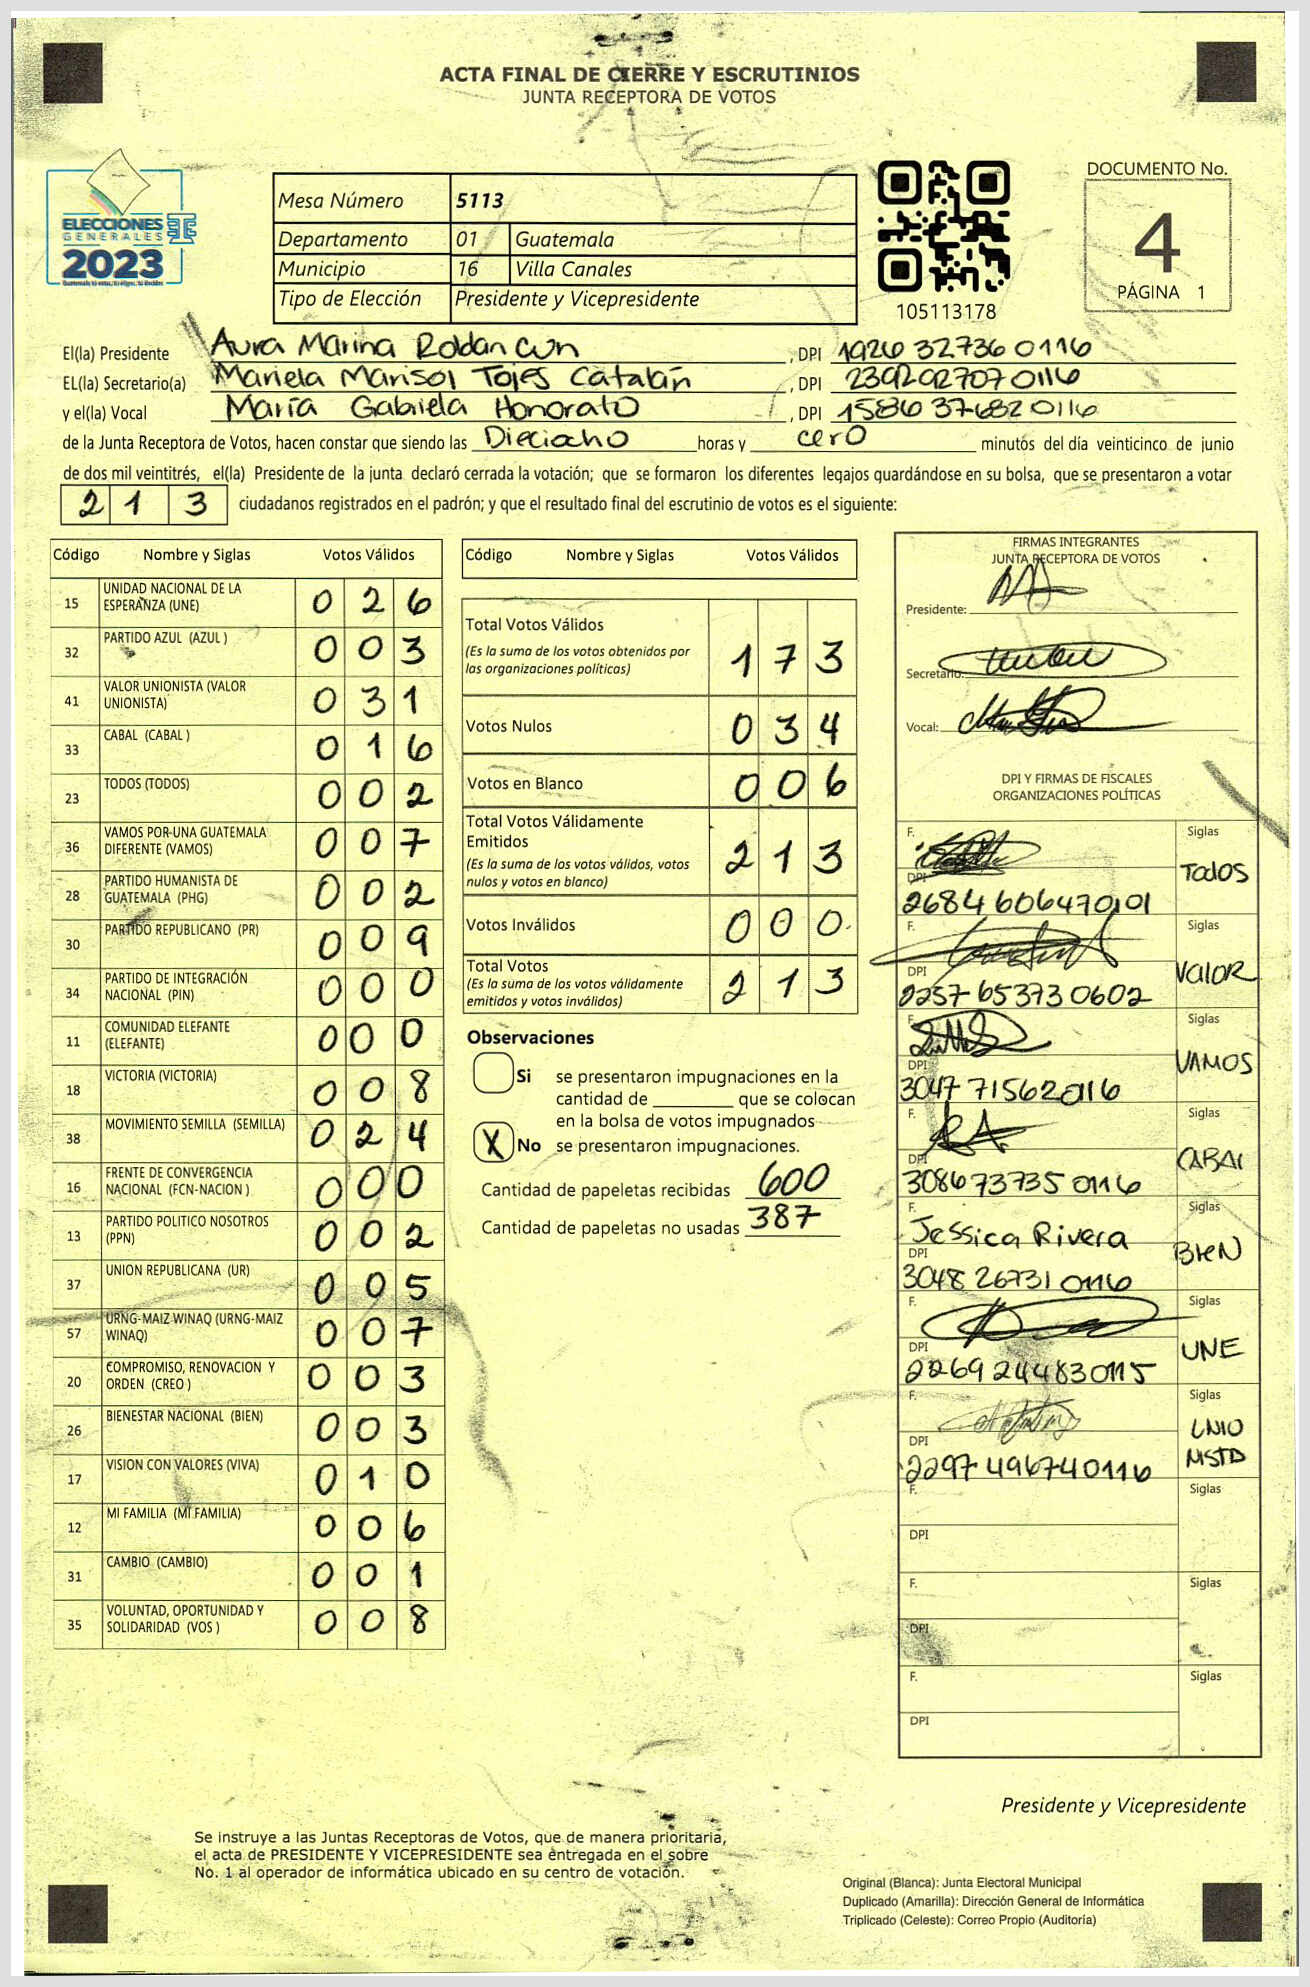 ACTA FINAL DE CIERRE Y ESCRUTINIOS
JUNTA RECEPTORA DE VOTOS
ELECCIONES
GENERALES
2023
Mesa Número 5113
Departamento 01 Guatemala
Municipio 16 Villa Canales
Tipo de Elección Presidente y Vicepresidente
105113178
DOCUMENTO No.
4
PÁGINA 1
El(la) Presidente Aura Marina Roldan Cun, DPI 1926 32736 0116
EL(la) Secretario(a) Mariela Marisol Tojes Catalán, DPI 2392027070116
y el(la) Vocal María Gabriela Honorato, DPI 1586 37682 0116
de la Junta Receptora de Votos, hacen constar que siendo las Dieciocho horas y cero minutos del día veinticinco de junio
de dos mil veintitrés, el(la) Presidente de la junta declaró cerrada la votación; que se formaron los diferentes legajos guardándose en su bolsa, que se presentaron a votar
2 1 3 ciudadanos registrados en el padrón; y que el resultado final del escrutinio de votos es el siguiente:
Código Nombre y Siglas Votos Válidos
15 UNIDAD NACIONAL DE LA ESPERANZA (UNE) 0 2 6
32 PARTIDO AZUL (AZUL ) 0 0 3
41 VALOR UNIONISTA (VALOR UNIONISTA) 0 3 1
33 CABAL (CABAL ) 0 1 6
23 TODOS (TODOS) 0 0 2
36 VAMOS POR UNA GUATEMALA DIFERENTE (VAMOS) 0 0 7
28 PARTIDO HUMANISTA DE GUATEMALA (PHG) 0 0 2
30 PARTIDO REPUBLICANO (PR) 0 0 9
34 PARTIDO DE INTEGRACIÓN NACIONAL (PIN) 0 0 0
11 COMUNIDAD ELEFANTE (ELEFANTE) 0 0 0
18 VICTORIA (VICTORIA) 0 0 8
38 MOVIMIENTO SEMILLA (SEMILLA) 0 2 4
16 FRENTE DE CONVERGENCIA NACIONAL (FCN-NACION ) 0 0 0
13 PARTIDO POLITICO NOSOTROS (PPN) 0 0 2
37 UNION REPUBLICANA (UR) 0 0 5
57 URNG-MAIZ WINAQ (URNG-MAIZ WINAQ) 0 0 7
20 COMPROMISO, RENOVACION Y ORDEN (CREO ) 0 0 3
26 BIENESTAR NACIONAL (BIEN) 0 0 3
17 VISION CON VALORES (VIVA) 0 1 0
12 MI FAMILIA (MI FAMILIA) 0 0 6
31 CAMBIO (CAMBIO) 0 0 1
35 VOLUNTAD, OPORTUNIDAD Y SOLIDARIDAD (VOS ) 0 0 8
Código Nombre y Siglas Votos Válidos
Total Votos Válidos 1 7 3
(Es la suma de los votos obtenidos por las organizaciones políticas)
Votos Nulos 0 3 4
Votos en Blanco 0 0 6
Total Votos Válidamente Emitidos 2 1 3
(Es la suma de los votos válidos, votos nulos y votos en blanco)
Votos Inválidos 0 0 0
Total Votos 2 1 3
(Es la suma de los votos válidamente emitidos y votos inválidos)
Observaciones
Si se presentaron impugnaciones en la
cantidad de ________ que se colocan
en la bolsa de votos impugnados
X No se presentaron impugnaciones.
Cantidad de papeletas recibidas 600
Cantidad de papeletas no usadas 387
FIRMAS INTEGRANTES
JUNTA RECEPTORA DE VOTOS
Presidente:
Secretario:
Vocal:
DPI Y FIRMAS DE FISCALES
ORGANIZACIONES POLÍTICAS
F. Siglas
DPI 2684 60647 0101 TODOS
F. Siglas
DPI 2257 65373 0602 VALOR
F. Siglas
DPI 3047 71562 0116 VAMOS
F. Siglas
DPI 3086 73735 0116 CABAL
F. Jessica Rivera Siglas
DPI 3048 26731 0116 BIEN
F. Siglas
DPI 2269 24483 0115 UNE
F. Siglas
DPI 2297 49674 0116 UNIO NISTA
F. Siglas
DPI
F. Siglas
DPI
F. Siglas
DPI
Presidente y Vicepresidente
Se instruye a las Juntas Receptoras de Votos, que de manera prioritaria,
el acta de PRESIDENTE Y VICEPRESIDENTE sea entregada en el sobre
No. 1 al operador de informática ubicado en su centro de votación.
Original (Blanca): Junta Electoral Municipal
Duplicado (Amarilla): Dirección General de Informática
Triplicado (Celeste): Correo Propio (Auditoría)